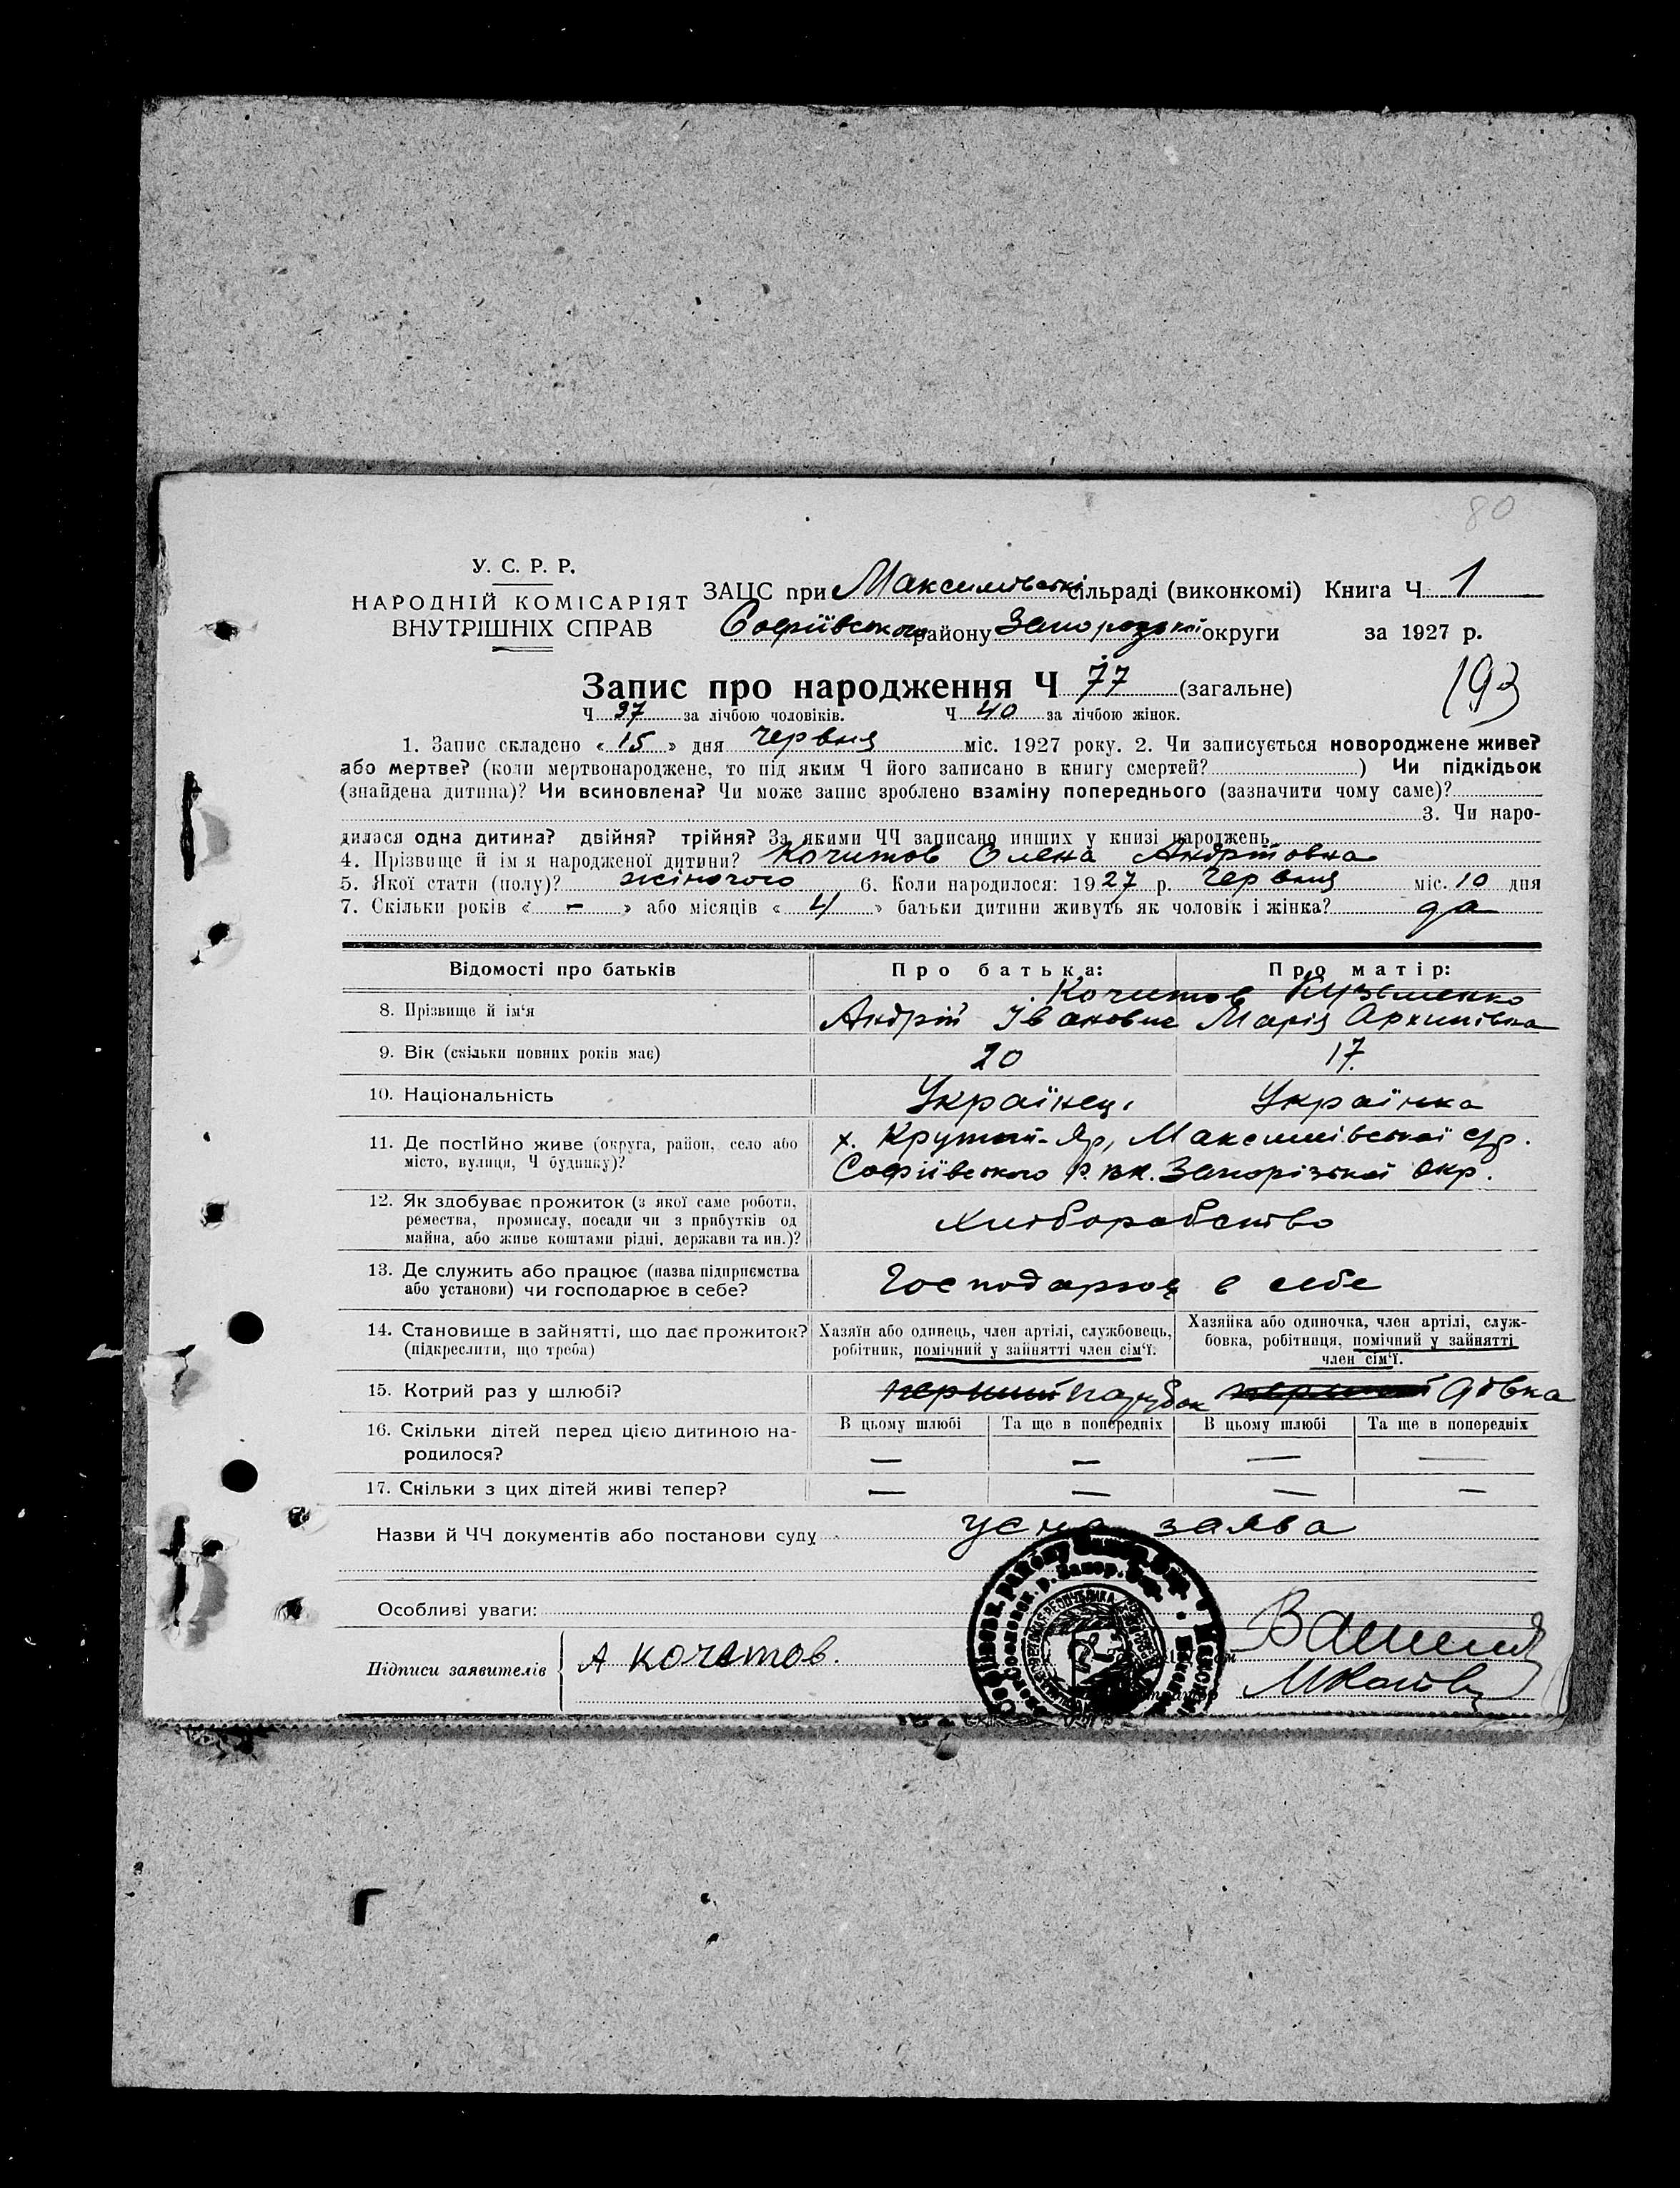 80
У. С. Р. Р.
НАРОДНІЙ КОМІСАРІЯТ
ВНУТРІШНІХ СПРАВ
ЗАЦС при Максимівській сільраді (виконкомі) Книга Ч 1
Софіївського району Запорізької округи за 1927 р.
193
Запис про народження Ч 77 (загальне)
Ч 37 за лічбою чоловіків. Ч 40 за лічбою жінок.
1. Запис складено « 15 » дня червня міс. 1927 року. 2. Чи записується новороджене живе?
або мертве? (коли мертвонароджене, то під яким Ч його записано в книгу смертей?) Чи підкідьок
(знайдена дитина)? Чи всиновлена? Чи може запис зроблено взаміну попереднього (зазначити чому саме)?
3. Чи наро-
дилася одна дитина? двійня? трійня? За якими ЧЧ записано инших у книзі народжень
4. Прізвище й ім я народженої дитини? Кочитов Олена Андріівна
5. Якої стати (полу)? жіночого 6. Коли народилося: 1927 р. червня міс. 10 дня
7. Скільки років « — » або місяців « 4 » батьки дитини живуть як чоловік і жінка? да
Відомості про батьків Про батька: Про матір:
8. Прізвище й ім'я Кочитов Кузьменко
Андрій Іванович Марія Архипівна
9. Вік (скільки повних років має) 20 17
10. Національність Українець Українка
11. Де постійно живе (округа, район, село або х. Крутий-Яр, Максимівської с/р.
місто, вулиця, Ч будинку)? Софіївського Р.вк. Запорізької окр.
12. Як здобуває прожиток (з якої саме роботи,
ремества, промислу, посади чи з прибутків од хліборобство
майна, або живе коштами рідні, держави та ин.)?
13. Де служить або працює (назва підприємства
або установи) чи господарює в себе? Господарює в себе
14. Становище в зайнятті, що дає прожиток? Хазяїн або одинець, член артілі, службовець, Хазяйка або одиночка, член артілі, служ-
(підкреслити, що треба) робітник, помічний у зайнятті член сім'ї. бовка, робітниця, помічний у зайнятті
член сім'ї.
15. Котрий раз у шлюбі? парубок дівка
16. Скільки дітей перед цією дитиною на- В цьому шлюбі Та ще в попередніх В цьому шлюбі Та ще в попередніх
родилося? — — — —
17. Скільки з цих дітей живі тепер? — — — —
Назви й ЧЧ документів або постанови суду усна заява
Особливі уваги:
Підписи заявителів А Кочетов.